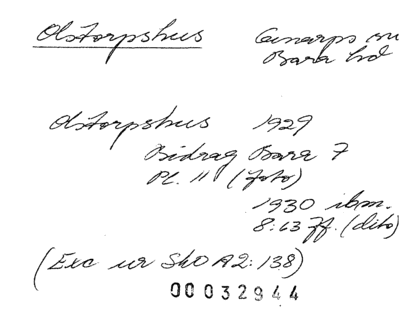 Olstorpshus Genarps sn
Bara hd
Olstorpshus 1929
Bidrag Bara 7
Pl. 11 (foto)
1930 ibm.
8:63 ff. (dito)
(Exc ur SkO A2:138)
00032944